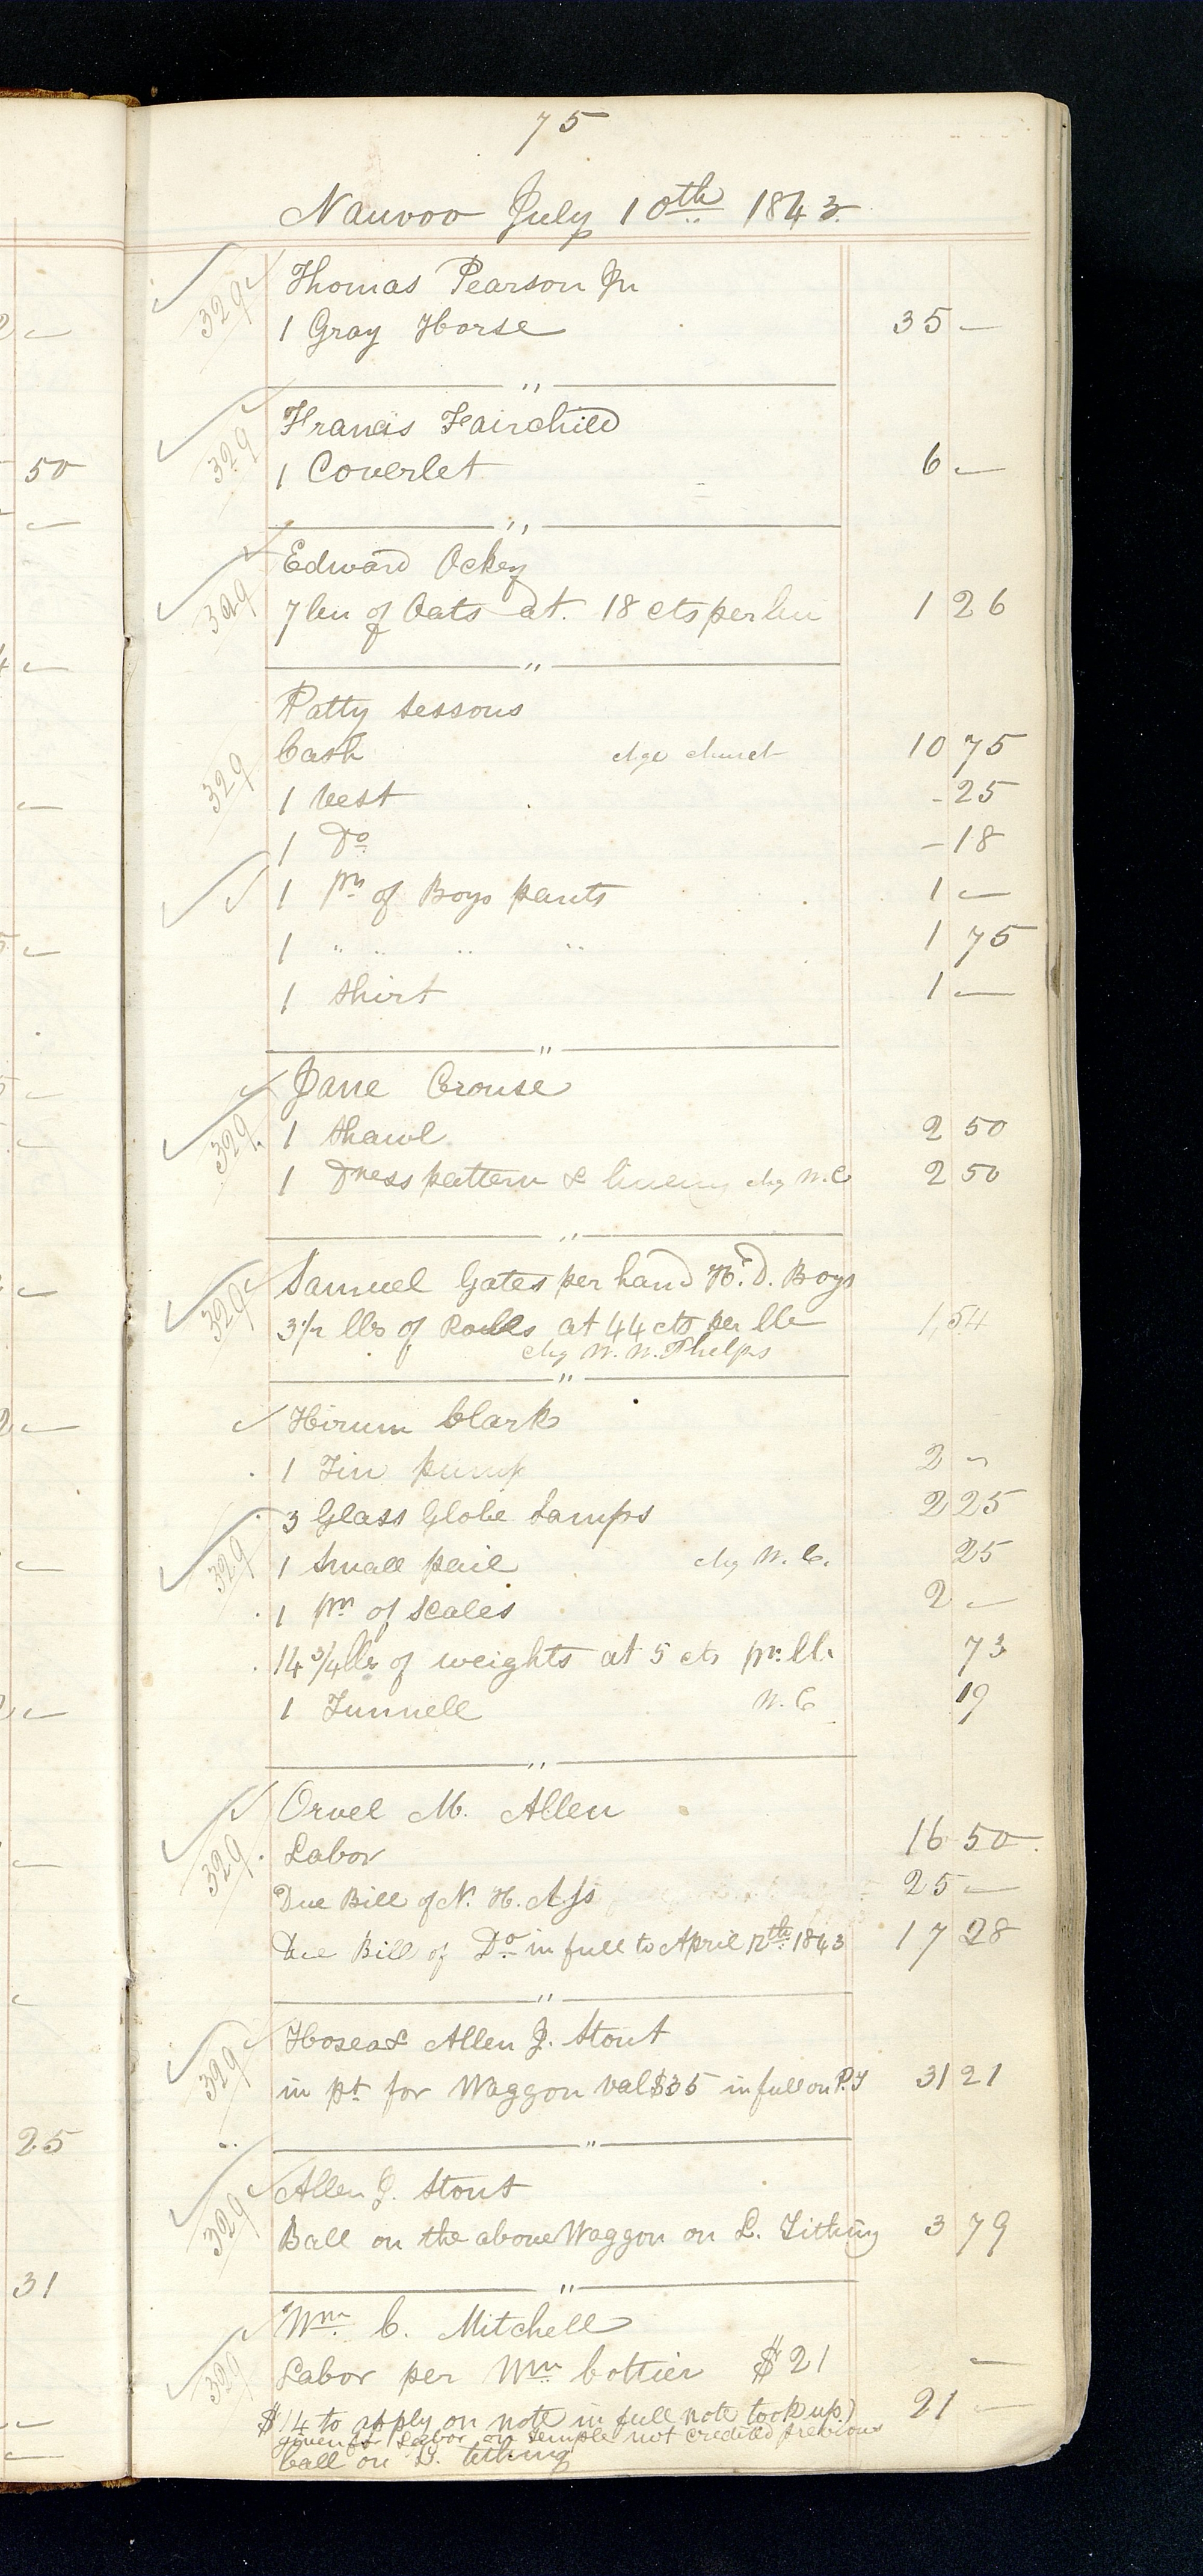 75
Nauvoo July 10th 1843
329 Thomas Pearson Jr
1 Gray Horse 35 —
"
329 Francis Fairchild
1 Coverlet 6 —
"
329 Edward Ockey
7 bu of Oats at 18 cts per bu 1 26
"
Patty Sessons
329 Cash chge church 10 75
1 Vest - 25
1 Do - 18
1 pr of Boys pants 1 —
1 " " " " 1 75
1 Shirt 1 —
"
Jane Crouse
329 1 Shawl 2 50
1 Dress pattern & lineing chg W. C 2 50
"
329 Samuel Gates per hand H. D. Boys
3 1/2 lbs of Rolls at 44 cts per lb 1,54
chg W. W. Phelps
"
Hirum Clark
1 Tin pump 2 —
3 Glass Globe Lamps 2 25
329 1 Small pail chg W. C. 25
1 pr of Scales 2 —
14 3/4 lbs of weights at 5 cts pr lb. 73
1 Tunnell W. C 19
"
Orvel M. Allen
329 Labor 16 50
Due Bill of N. H. Ass 25 —
Due Bill of Do in full to April 12th 1843 17 28
"
329 Hosea & Allen J. Stout
in pt for Waggon val $35 in full on P. T 31 21
"
329 Allen J. Stout
Ball on the above Waggon on L. Tithing 3 79
"
Wm C. Mitchell
329 Labor per Wm Cottier $21 —
$14 to apply on note in full note took up) 21 —
given for Labor on Temple not credited previous
ball on L. tithing